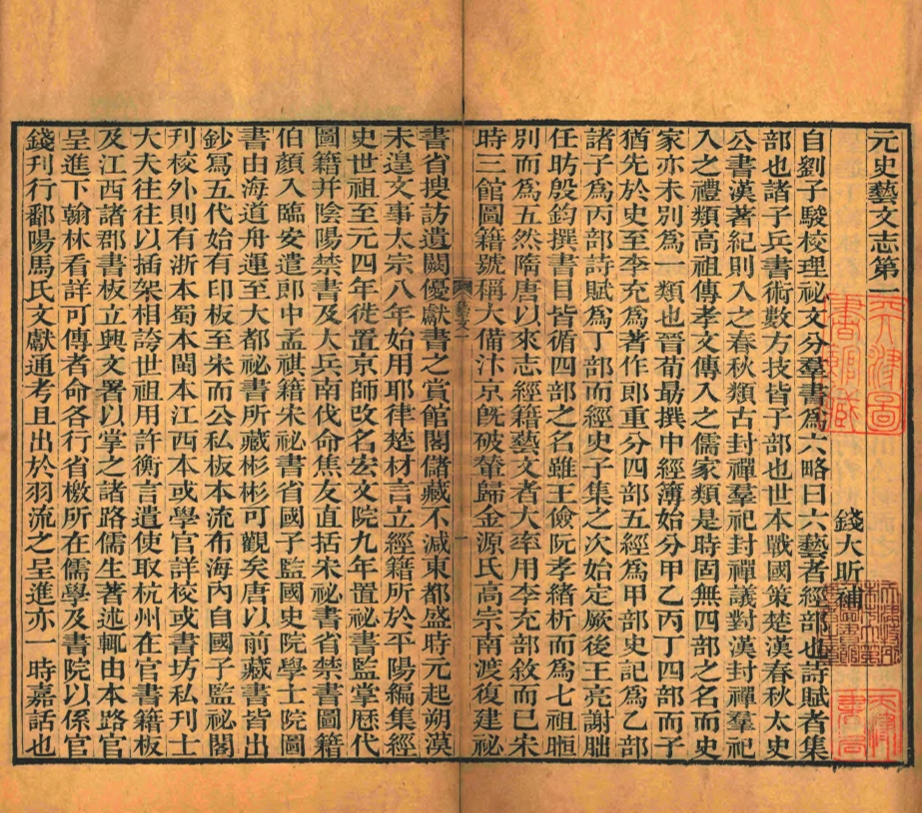 元史藝文志第一
錢大昕補
自劉子駿校理祕文分羣書爲六略曰六藝者經部也詩賦者集
部也諸子兵書術數方技皆子部也世本戰國策楚漢春秋太史
公書漢著紀則入之春秋類古封禪羣祀封禪議對漢封禪羣祀
入之禮類高祖傳孝文傳入之儒家類是時固無四部之名而史
家亦未別爲一類也晉荀勗撰中經簿始分甲乙丙丁四部而子
猶先於史至李充爲著作郎重分四部五經爲甲部史記爲乙部
諸子爲丙部詩賦爲丁部而經史子集之次始定厥後王亮謝朏
任昉殷鈞撰書目皆循四部之名雖王儉阮孝緒析而爲七祖暅
別而爲五然隋唐以來志經籍藝文者大率用李充部敘而已宋
時三館圖籍號稱大備汴京旣破輦歸金源氏高宗南渡復建祕
藝文一
一
書省搜訪遺闕優獻書之賞館閣儲藏不減東都盛時元起朔漠
未遑文事太宗八年始用耶律楚材言立經籍所於平陽編集經
史世祖至元四年徙置京師改名宏文院九年置祕書監掌厯代
圖籍并陰陽禁書及大兵南伐命焦友直括宋祕書省禁書圖籍
伯顏入臨安遣郎中孟祺籍宋祕書省國子監國史院學士院圖
書由海道舟運至大都祕書所藏彬彬可觀矣唐以前藏書皆出
鈔寫五代始有印板至宋而公私板本流布海內自國子監祕閣
刊校外則有浙本蜀本閩本江西本或學官詳校或書坊私刊士
大夫往往以插架相誇世祖用許衡言遣使取杭州在官書籍板
及江西諸郡書板立興文署以掌之諸路儒生著述輒由本路官
呈進下翰林看詳可傳者命各行省檄所在儒學及書院以係官
錢刊行鄱陽馬氏文獻通考且出於羽流之呈進亦一時嘉話也